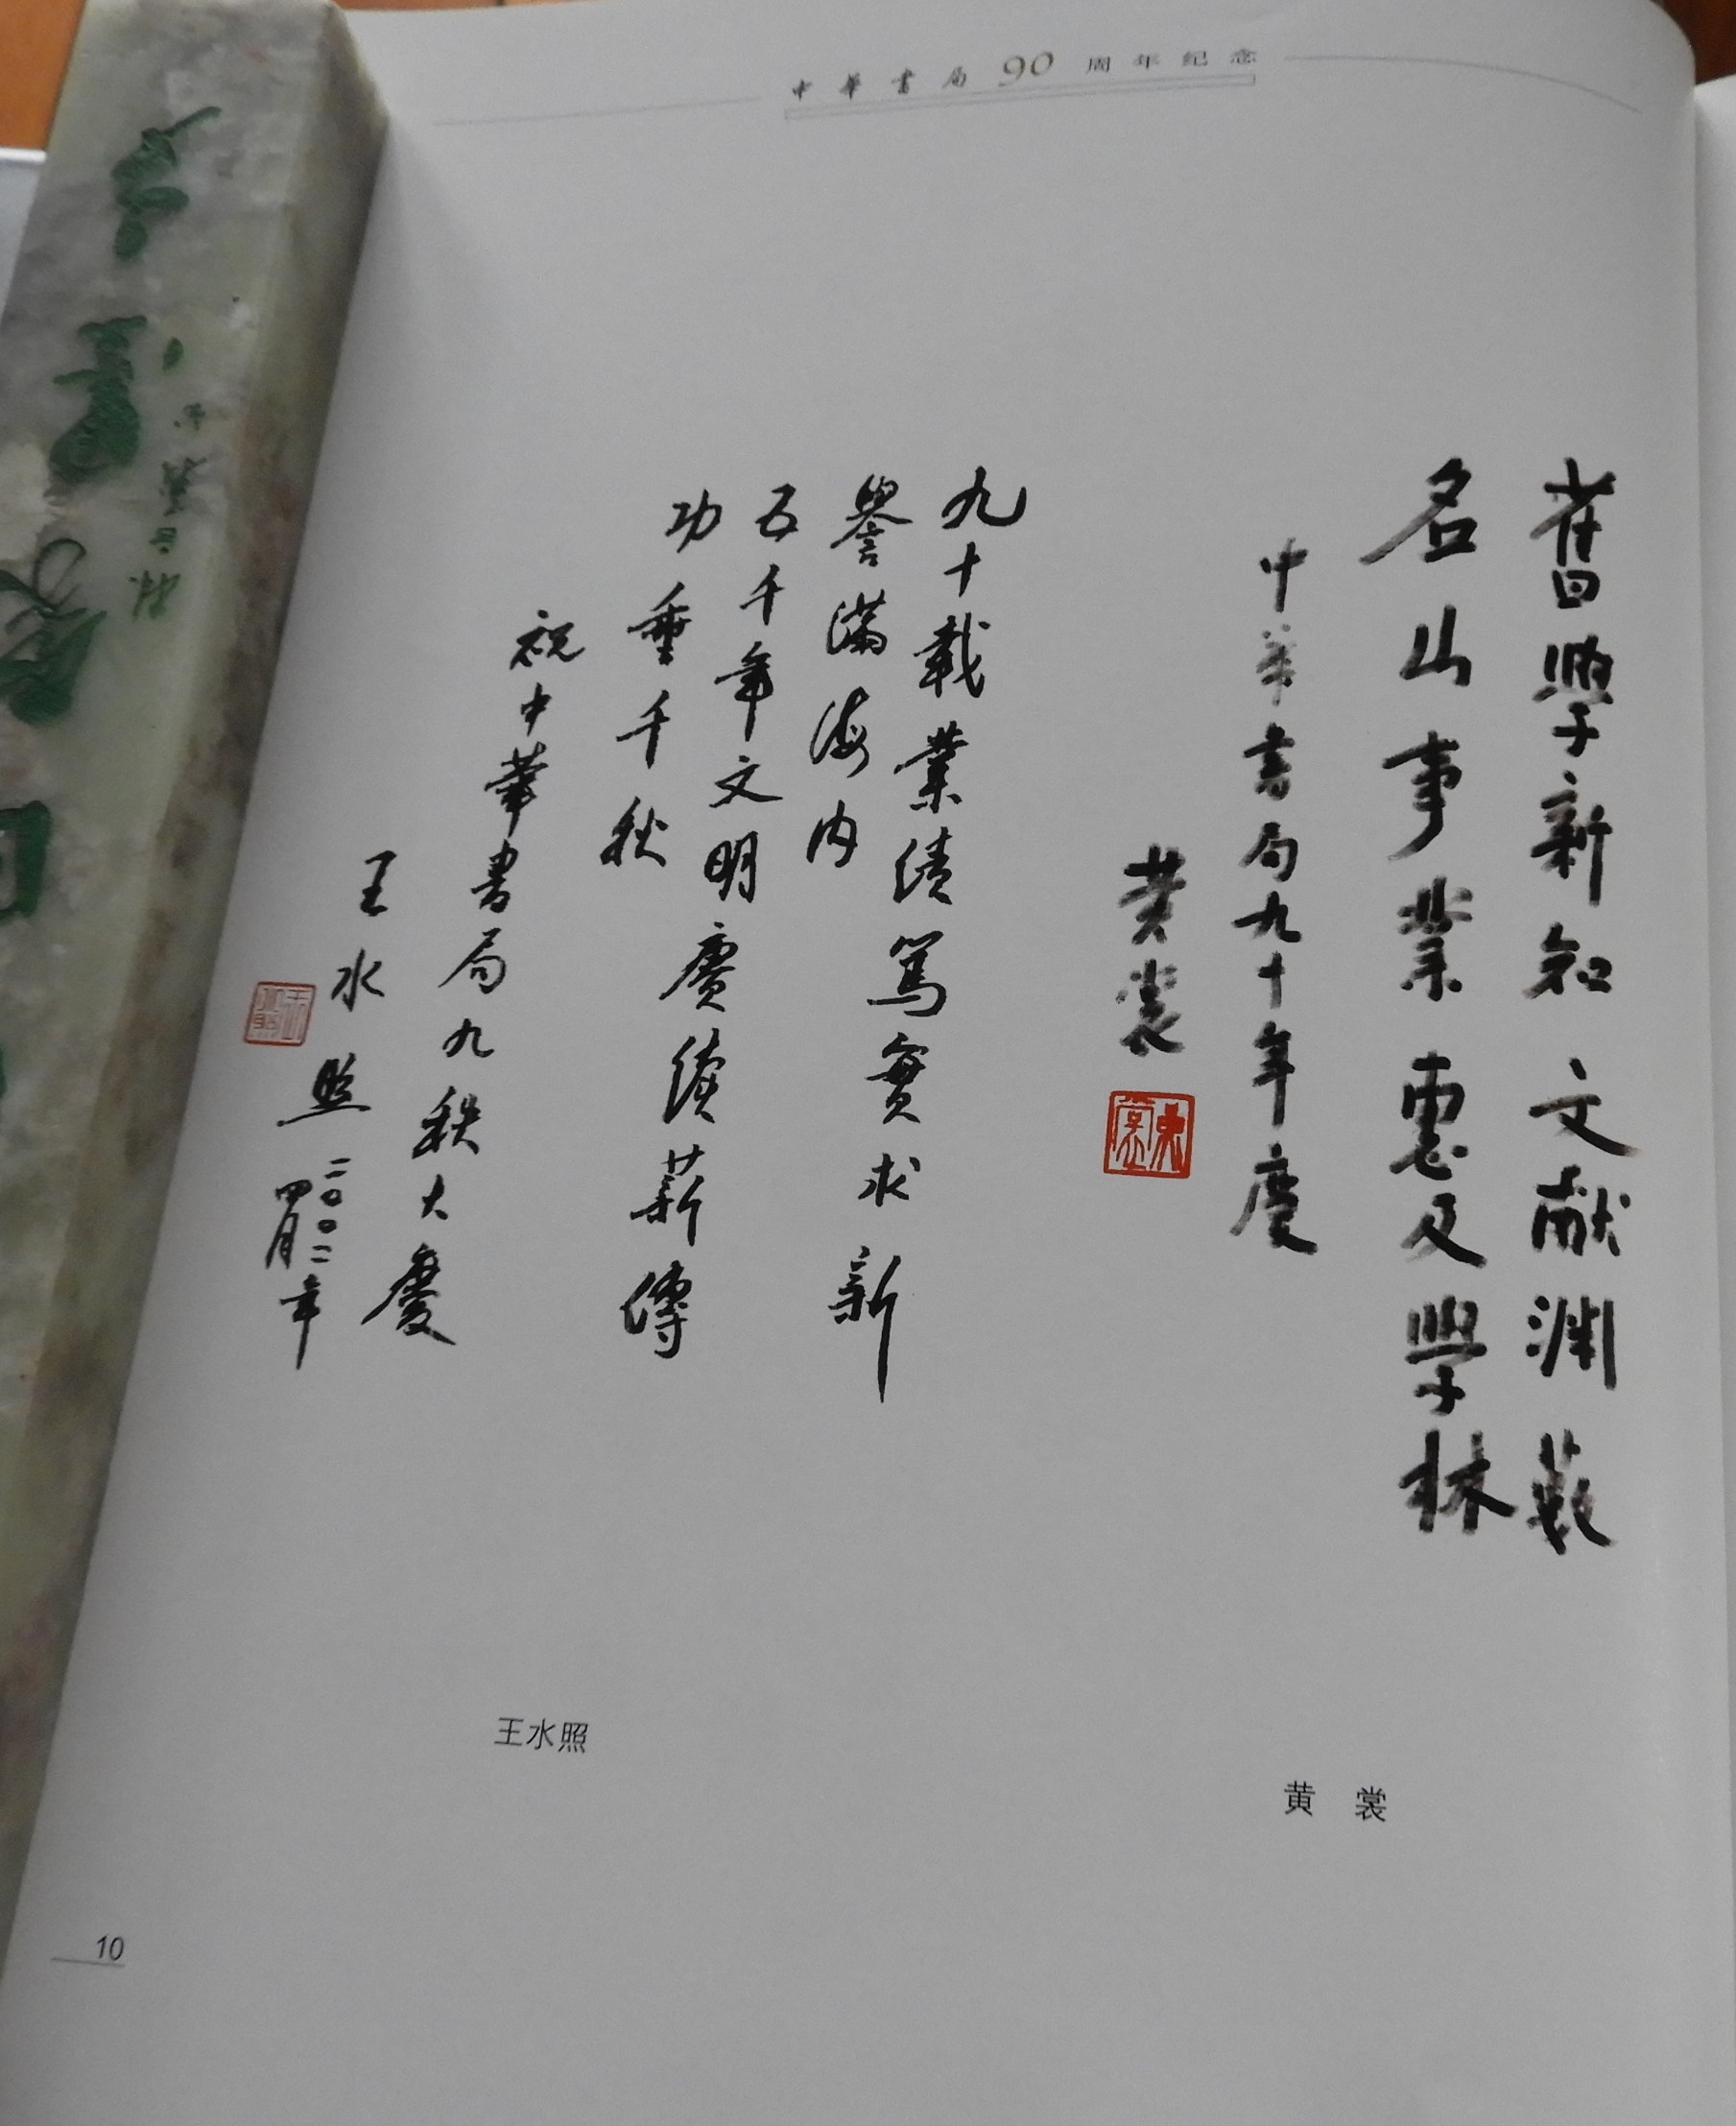 中華書局90周年纪念
舊學新知文献渊薮
名山事業惠及學林
中华書局九十年慶
黄裳
九十載業績篤實求新
譽滿海內
五千年文明賡續薪傳
功垂千秋
祝中華書局九秩大慶
王水照
二〇〇二年
四月
王水照
黄裳
10